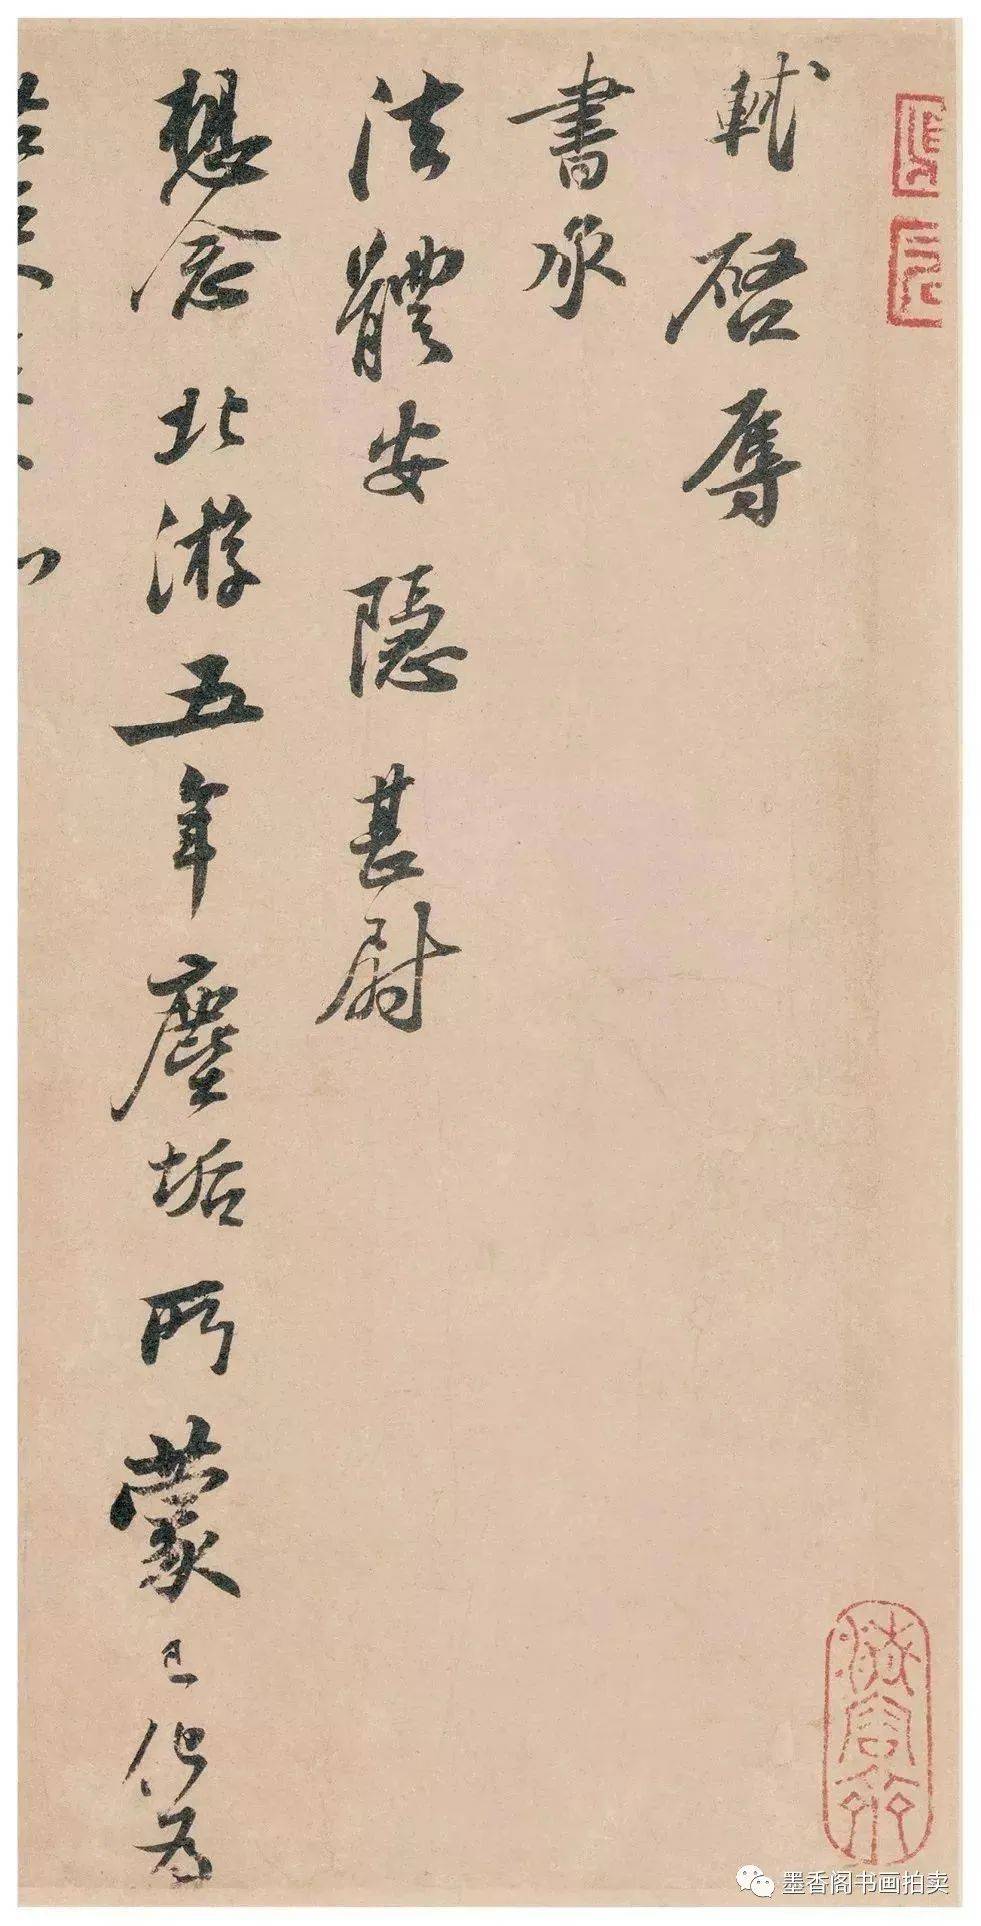 軾啓辱
書承
法體安隱甚尉
想念北游五年塵垢所蒙已化為
墨香阁书画拍卖